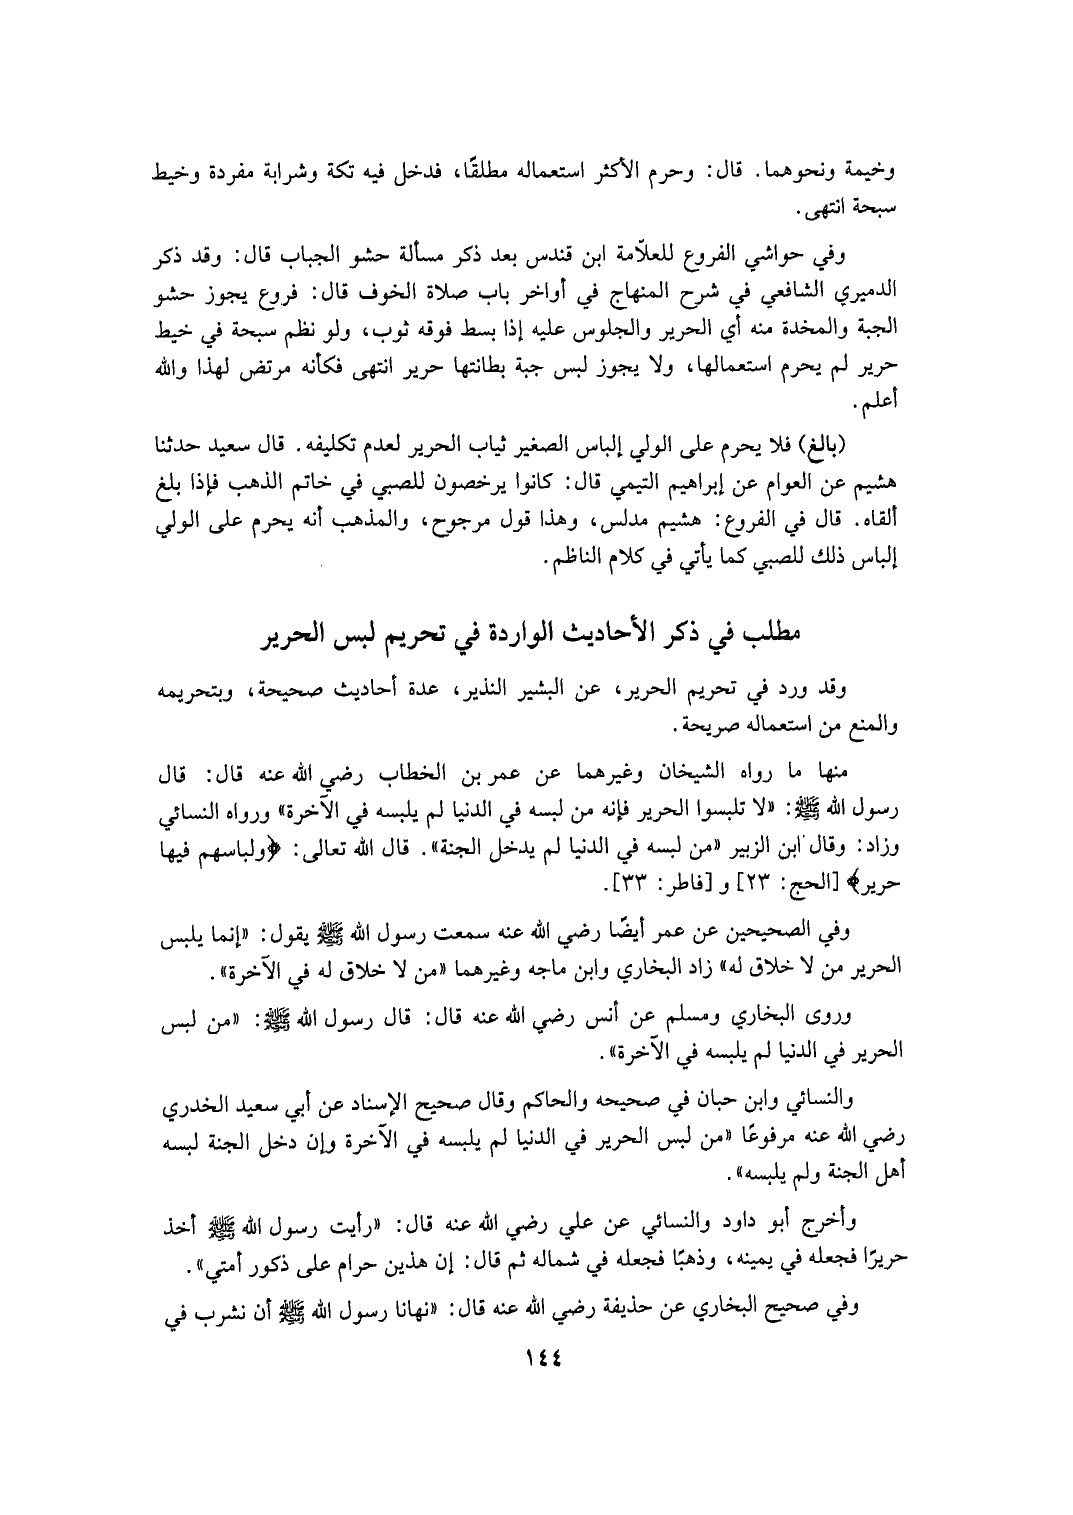 وخيمة ونحوهما. قال: وحرم الأكثر استعماله مطلقًا، فدخل فيه تكة وشرابة مفردة وخيط
سبحة انتهى.
وفي حواشي الفروع للعلاّمة ابن قندس بعد ذكر مسألة حشو الجباب قال: وقد ذكر
الدميري الشافعي في شرح المنهاج في أواخر باب صلاة الخوف قال: فروع يجوز حشو
الجبة والمخدة منه أي الحرير والجلوس عليه إذا بسط فوقه ثوب، ولو نظم سبحة في خيط
حرير لم يحرم استعمالها، ولا يجوز لبس جبة بطانتها حرير انتهى فكأنه مرتض لهذا والله
أعلم.
(بالغ) فلا يحرم على الولي إلباس الصغير ثياب الحرير لعدم تكليفه. قال سعيد حدثنا
هشيم عن العوام عن إبراهيم التيمي قال: كانوا يرخصون للصبي في خاتم الذهب فإذا بلغ
ألقاه. قال في الفروع: هشيم مدلس، وهذا قول مرجوح، والمذهب أنه يحرم على الولي
إلباس ذلك للصبي كما يأتي في كلام الناظم.
مطلب في ذكر الأحاديث الواردة في تحريم لبس الحرير
وقد ورد في تحريم الحرير، عن البشير النذير، عدة أحاديث صحيحة، وبتحريمه
والمنع من استعماله صريحة.
منها ما رواه الشيخان وغيرهما عن عمر بن الخطاب رضي الله عنه قال: قال
رسول الله ﷺ: «لا تلبسوا الحرير فإنه من لبسه في الدنيا لم يلبسه في الآخرة» ورواه النسائي
وزاد: وقال ابن الزبير «من لبسه في الدنيا لم يدخل الجنة». قال الله تعالى: ﴿ولباسهم فيها
حرير﴾ [الحج: ٢٣] و [فاطر: ٣٣].
وفي الصحيحين عن عمر أيضًا رضي الله عنه سمعت رسول الله ﷺ يقول: «إنما يلبس
الحرير من لا خلاق له» زاد البخاري وابن ماجه وغيرهما «من لا خلاق له في الآخرة».
وروى البخاري ومسلم عن أنس رضي الله عنه قال: قال رسول الله ﷺ: «من لبس
الحرير في الدنيا لم يلبسه في الآخرة».
والنسائي وابن حبان في صحيحه والحاكم وقال صحيح الإسناد عن أبي سعيد الخدري
رضي الله عنه مرفوعًا «من لبس الحرير في الدنيا لم يلبسه في الآخرة وإن دخل الجنة لبسه
أهل الجنة ولم يلبسه».
وأخرج أبو داود والنسائي عن علي رضي الله عنه قال: «رأيت رسول الله ﷺ أخذ
حريرًا فجعله في يمينه، وذهبًا فجعله في شماله ثم قال: إن هذين حرام على ذكور أمتي».
وفي صحيح البخاري عن حذيفة رضي الله عنه قال: «نهانا رسول الله ﷺ أن نشرب في
١٤٤